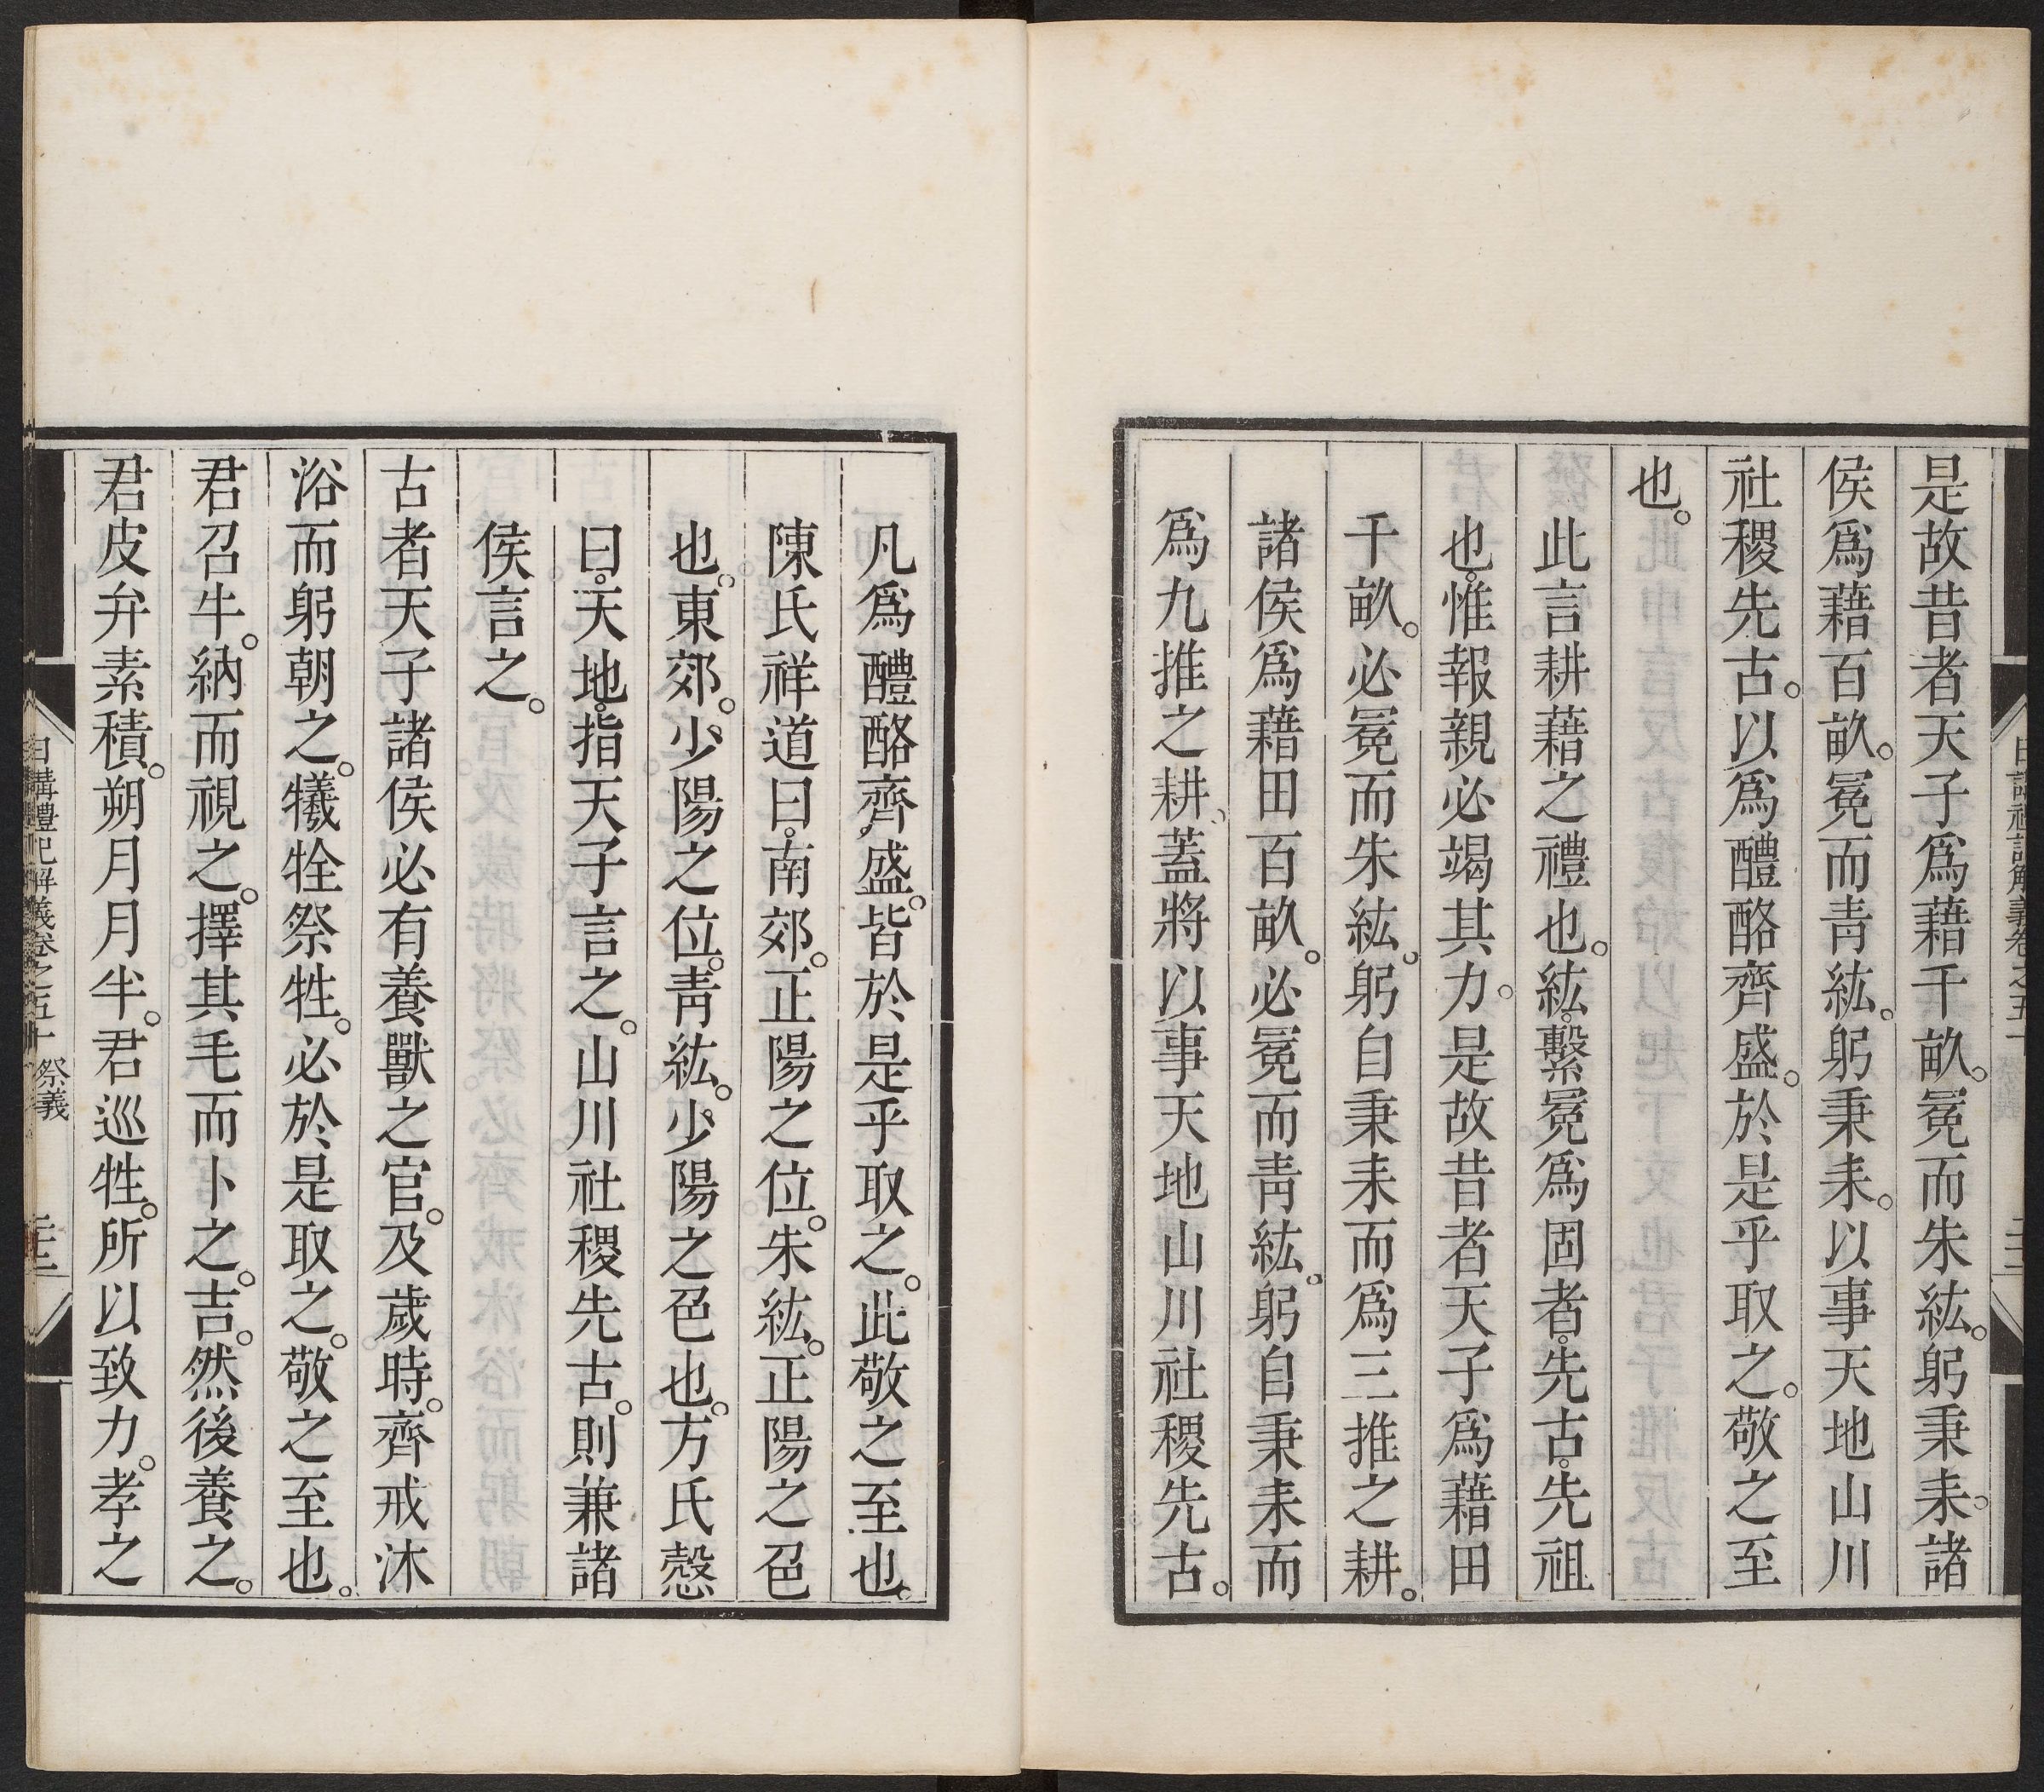 是故昔者天子爲藉千畝。冕而朱紘。躬秉耒。諸
侯爲藉百畝。冕而靑紘。躬秉耒。以事天地山川
社稷先古。以爲醴酪齊盛。於是乎取之。敬之至
也。
此言耕藉之禮也。紘。繫冕爲固者。先古。先祖
也。惟報親必竭其力。是故昔者天子爲藉田
千畝。必冕而朱紘。躬自秉耒而爲三推之耕。
諸侯爲藉田百畝。必冕而靑紘。躬自秉耒而
爲九推之耕、蓋將以事天地山川社稷先古。
凡爲醴酪齊盛。皆於是乎取之。此敬之至也。
陳氏祥道曰。南郊。正陽之位。朱紘。正陽之色
也。東郊。少陽之位。靑紘。少陽之色也。方氏慤
曰。天地。指天子言之。山川社稷先古。則兼諸
侯言之。
古者天子諸侯必有養獸之官。及歲時。齊戒沐
浴而躬朝之。犧牷祭牲。必於是取之。敬之至也。
君召牛。納而視之。擇其毛而卜之。吉。然後養之。
君皮弁素積。朔月月半。君巡牲。所以致力。孝之
日講禮記解義卷之五十 祭義